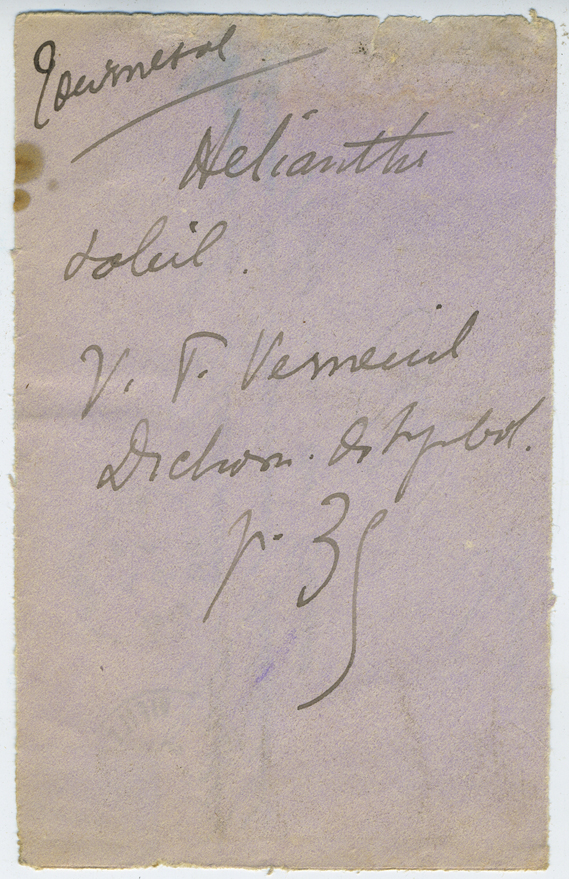 Tournesol
Helianthe
Soleil.
V. T. Verneuil
Diction.
p. 35